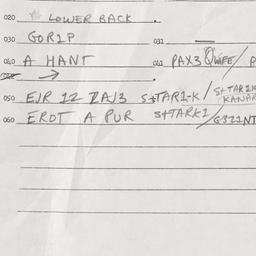 020 LOWER BACK
030 GOR1P 031
040 A HANT 041 PAX3 QWIFE/
→
050 EJR 12 ZAJ3 S+TAR1-K/S+TAR1K
KANAR
060 EROT A PUR S+TARK1/G3Z1NT